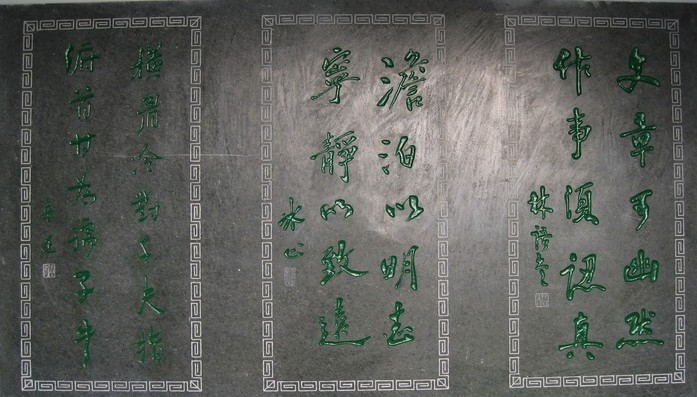 文章可幽默
作事須認真
林語堂
澹泊以明志
寧靜以致遠
冰心
橫眉冷對千夫指
俯首甘為孺子牛
魯迅